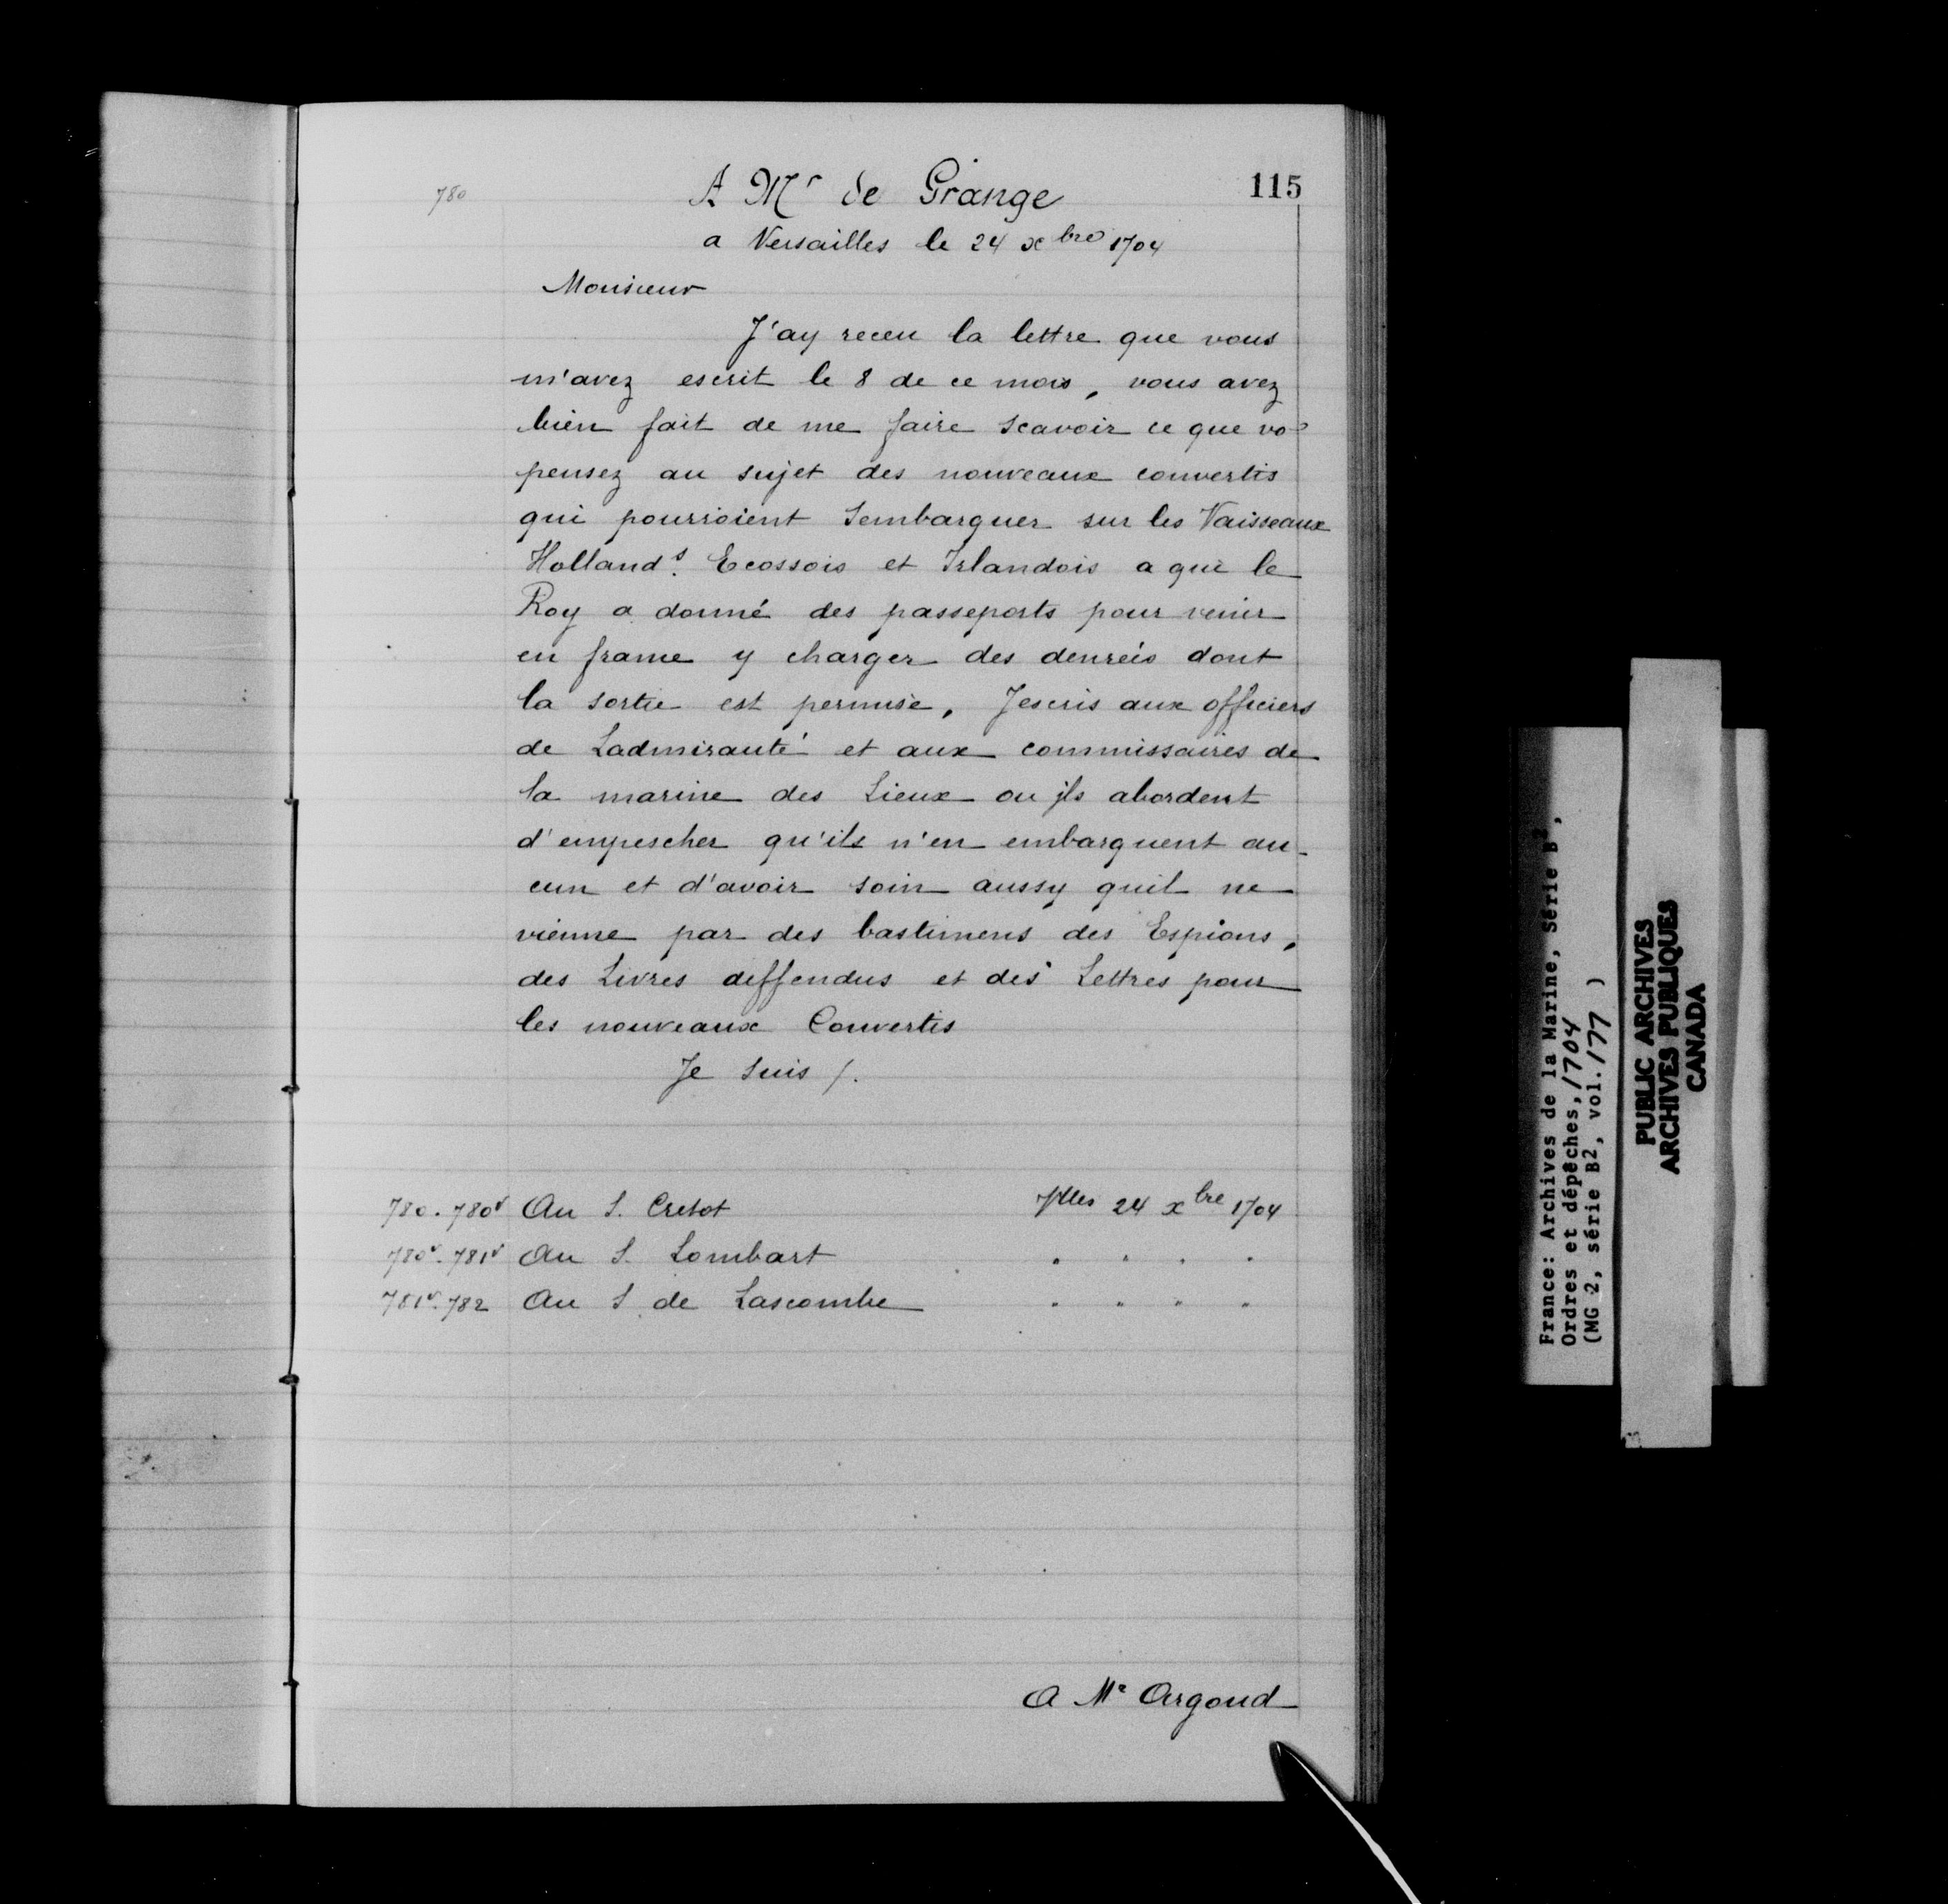 115
780
A Mr de Grange
a Versailles le 24 xbre 1704
Monsieur
J'ay receu la lettre que vous
m'avez escrit le 8 de ce mois, vous avez
bien fait de me faire scavoir ce que vos
pensez au sujet des nouveaux convertis
qui pourroient Sembarquer sur les Vaisseaux
Holland.s Ecossois et Irlandois a qui le
Roy a donné des passeports pour venir
en france y charger des denreés dont
la sortie est permise, Jescris aux officiers
de Ladmirauté et aux commissaires de
la marine des Lieux ou jls abordent
d'empescher qu'ils n'en embarquent au-
cun et d'avoir soin aussy quil ne
vienne par des bastimens des Espions,
des Livres deffendus et des Lettres pour
les nouveaux Convertis
Je Suis /.
780. 780v Au S. Cretot Vlles 24 xbre 1704
780v. 781v Au S. Lombart " " " "
781v. 782 Au S. de Lascombe " " " "
A Mr Argoud
France: Archives de la Marine, Série B2,
Ordres et dépêches, 1704
(MG 2, série B2, vol. 177 )
PUBLIC ARCHIVES
ARCHIVES PUBLIQUES
CANADA